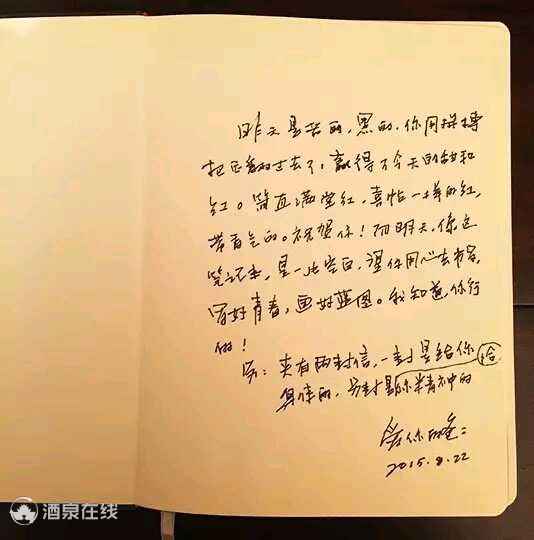 昨天是苦的,黑的,你用拼搏
把它翻过去了,赢得了今天的甜和
红。简直满堂红,喜帖一样的红,
带着气的。祝贺你!而明天,像这
笔记本,是一片空白,得你用心去书写,
写好青春,画好蓝图。我知道,你行
的!
另:夹有两封信,一封是给你
身体的,另封是给你精神的
爱你的爸:
2015.8.22
酒泉在线